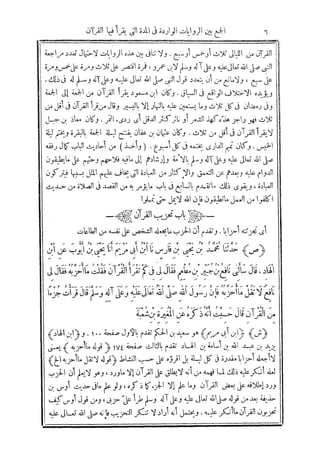 ٦ الجمع بين الروايات الواردة فى المدة التى يقرأ فيها القرآن
القرآن من الليالى ثلاث أوخمس أوسبع . ولا تنافى بين هذه الروايات لاحتمال تعدد مراجعة
النبى صلى الله تعالى عليه وعلى آله وسلم لابن عمرو ، فمرة اقتصر على ثلاث ومرة على خمس ومرة
على سبع . ولامانع من أن يتعدد قول النبى صلى الله تعالى عليه وعلى آله وسلم له فى ذلك.
ويؤيده الاختلاف الواقع فى السياق. وكان ابن مسعود يقرأ القرآن من الجمعة إلى الجمعة
وفى رمضان فى كل ثلاث وما يستعين عليه بالنهار إلا باليسير وقال من قرأ القرآن فى أقل من
ثلاث فهو راجز هذا كهذ الشعر أو نثر كنثر الدقل أى ردىء التمر. وكان معاذ بن جبل
لا يقرأ القرآن فى أقل من ثلاث. وكان عثمان بن عفان يفتتح ليلة الجمعة بالبقرة ويختم ليلة
الخميس. وكان تميم الدارى يختمه فى كل أسبوع. (وأخذ) من أحاديث الباب كمال رفقه
صلى الله تعالى عليه وعلى آله وسلم بالأمة وإرشادهم إلى مافيه فلاحهم وحثهم على مايطيقون
الدوام عليه وبعدهم عن التعمق والإكثار من العبادة التى يخاف عليهم الملل بسببها فيتركون
العبادة، ويقوى ذلك ماتقدم بالسابع فى باب مايؤمر به من القصد فى الصلاة من حديث
اكلفوا من العمل ماتطيقون فإن الله لا يمل حتى تملوا
باب تحزيب القرآن
أى تجزئته أحزابا. وتقدم أن الحزب مايجعله الشخص على نفسه من الطاعات
(ص) حَدَّثَنَا مُحَمَّدُ بْنُ يَحْيَى بْنِ فَارِسٍ نَا ابْنُ أَبِى مَرْيَمَ أَنَا يَحْيَى بْنُ أَيُّوبَ عَنِ ابْنِ
الْهَادِ، قَالَ سَأَلَنِى نَافِعُ بْنُ جُبَيْرِ بْنِ مُطْعِمٍ فَقَالَ لِى فِى كَمْ تَقْرَأُ الْقُرْآنَ فَقُلْتُ مَا أُحَزِّبُهُ فَقَالَ لِى
نَافِعٌ لَا تَقُلْ مَا أُحَزِّبُهُ فَإِنَّ رَسُولَ اللهِ صَلَّى اللهُ تَعَالَى عَلَيْهِ وَعَلَى آلِهِ وَسَلَّمَ قَالَ قَرَأْتُ جُزْءًا
مِنَ الْقُرْآنِ قَالَ حَسِبْتُ أَنَّهُ ذَكَرَهُ عَنِ الْمُغِيرَةِ بْنِ شُعْبَةَ
(ش) (ابن أبى مريم) هو سعيد بن الحكم تقدم بالأول صفحة ١٠٠. و (ابن الهاد)
يزيد بن عبد الله بن أسامة بن الهاد تقدم بالثالث صفحة ١٧٤ (قوله ما أحزبه) يعنى
لا أجعله أحزابا مقدرة فى كل ليلة بل اقرؤه على حسب النشاط (قوله لا تقل ما أحزبه الخ)
لعله أنكر عليه ذلك لما فهمه من أنه لا يطلق على القرآن إلا ماورد، وهو لا يعلم أن الحزب
ورد إطلاقه على بعض القرآن وما علم إلا الجزء كما ذكره، ولو علم مافى حديث أوس بن
حذيفة بعد من قوله صلى الله تعالى عليه وعلى آله وسلم طرأ علىّ حزبى، ومن قول أوس كيف
تحزبون القرآن ما أنكر عليه. ويحتمل أنه أراد لا تنكر التحزيب فإنه صلى الله تعالى عليه